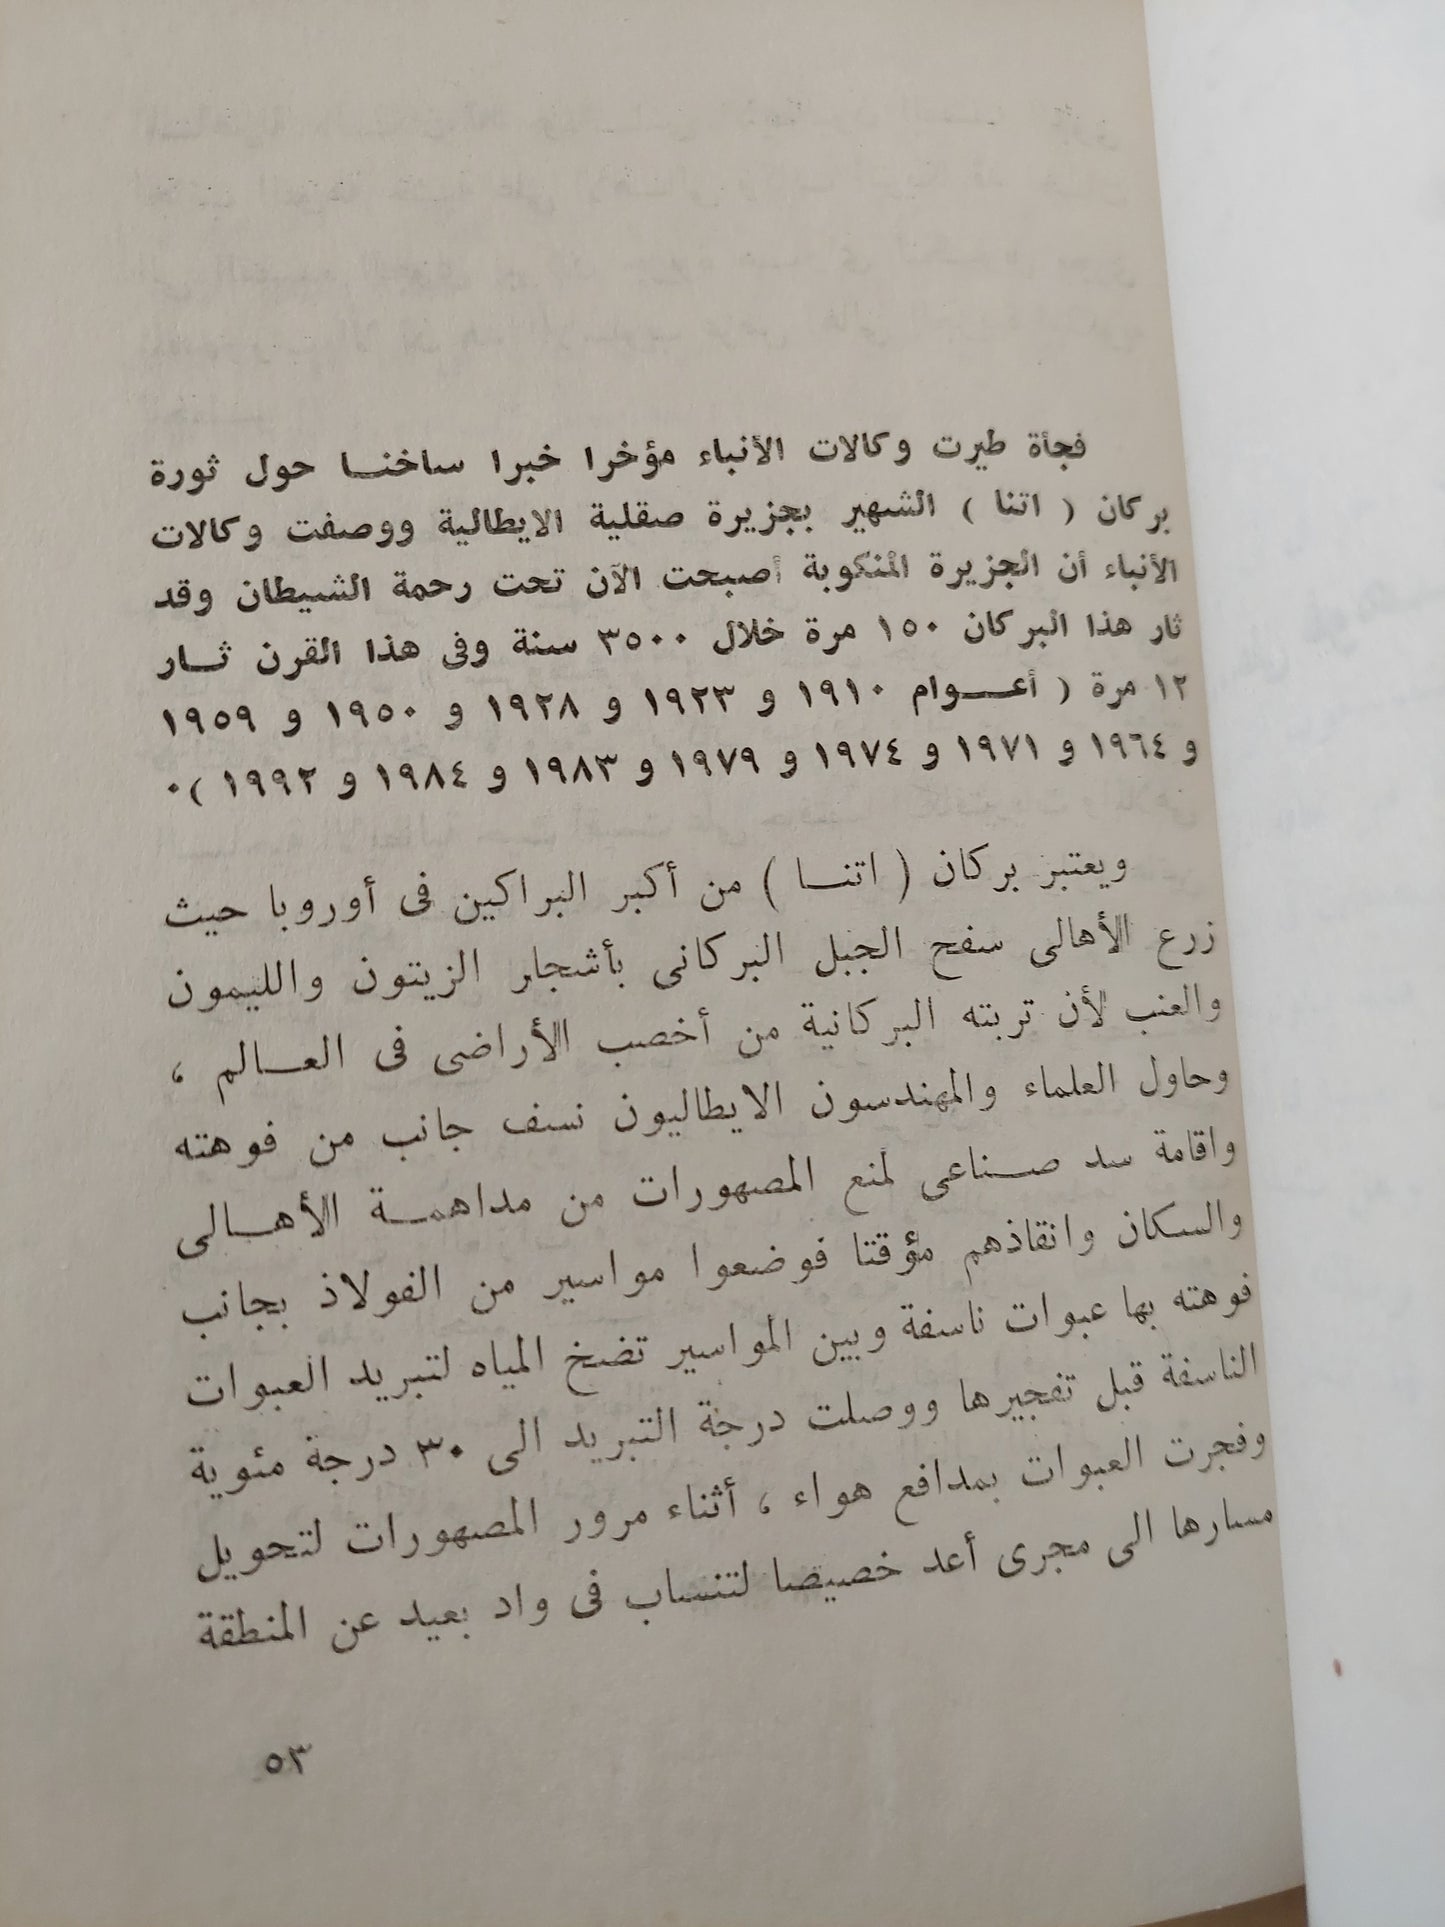 فجأة طيرت وكالات الأنباء مؤخرا خبرا ساخنا حول ثورة
بركان ( اتنا ) الشهير بجزيرة صقلية الايطالية ووصفت وكالات
الأنباء أن الجزيرة المنكوبة أصبحت الآن تحت رحمة الشيطان وقد
ثار هذا البركان ١٥٠ مرة خلال ٣٥٠٠ سنة وفى هذا القرن ثار
١٢ مرة ( أعوام ١٩١٠ و ١٩٢٣ و ١٩٢٨ و ١٩٥٠ و ١٩٥٩
و ١٩٦٤ و ١٩٧١ و ١٩٧٤ و ١٩٧٩ و ١٩٨٣ و ١٩٨٤ و ١٩٩٢ )٠
ويعتبر بركان ( اتنا ) من أكبر البراكين فى أوروبا حيث
زرع الأهالى سفح الجبل البركانى بأشجار الزيتون والليمون
والعنب لأن تربته البركانية من أخصب الأراضى فى العالم ،
وحاول العلماء والمهندسون الايطاليون نسف جانب من فوهته
واقامة سد صناعى لمنع المصهورات من مداهمة الأهالى
والسكان وانقاذهم مؤقتا فوضعوا مواسير من الفولاذ بجانب
فوهته بها عبوات ناسفة وبين المواسير تضخ المياه لتبريد العبوات
الناسفة قبل تفجيرها ووصلت درجة التبريد الى ٣٠ درجة مئوية
وفجرت العبوات بمدافع هواء ، أثناء مرور المصهورات لتحويل
مسارها الى مجرى أعد خصيصا لتنساب فى واد بعيد عن المنطقة
٥٣